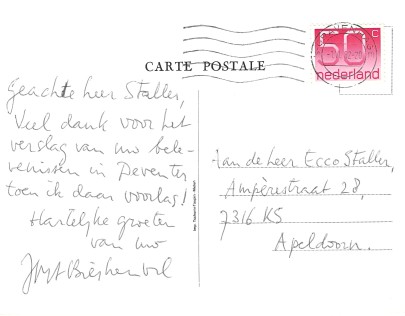 CARTE POSTALE
60 c
nederland
Geachte heer Staller,
Veel dank voor het
verslag van uw bele-
venissen in Deventer
toen ik daar voorlas!
Hartelijke groeten
van uw
Aan de heer Ecco Staller,
Ampèrestraat 28,
7316 KS
Apeldoorn.